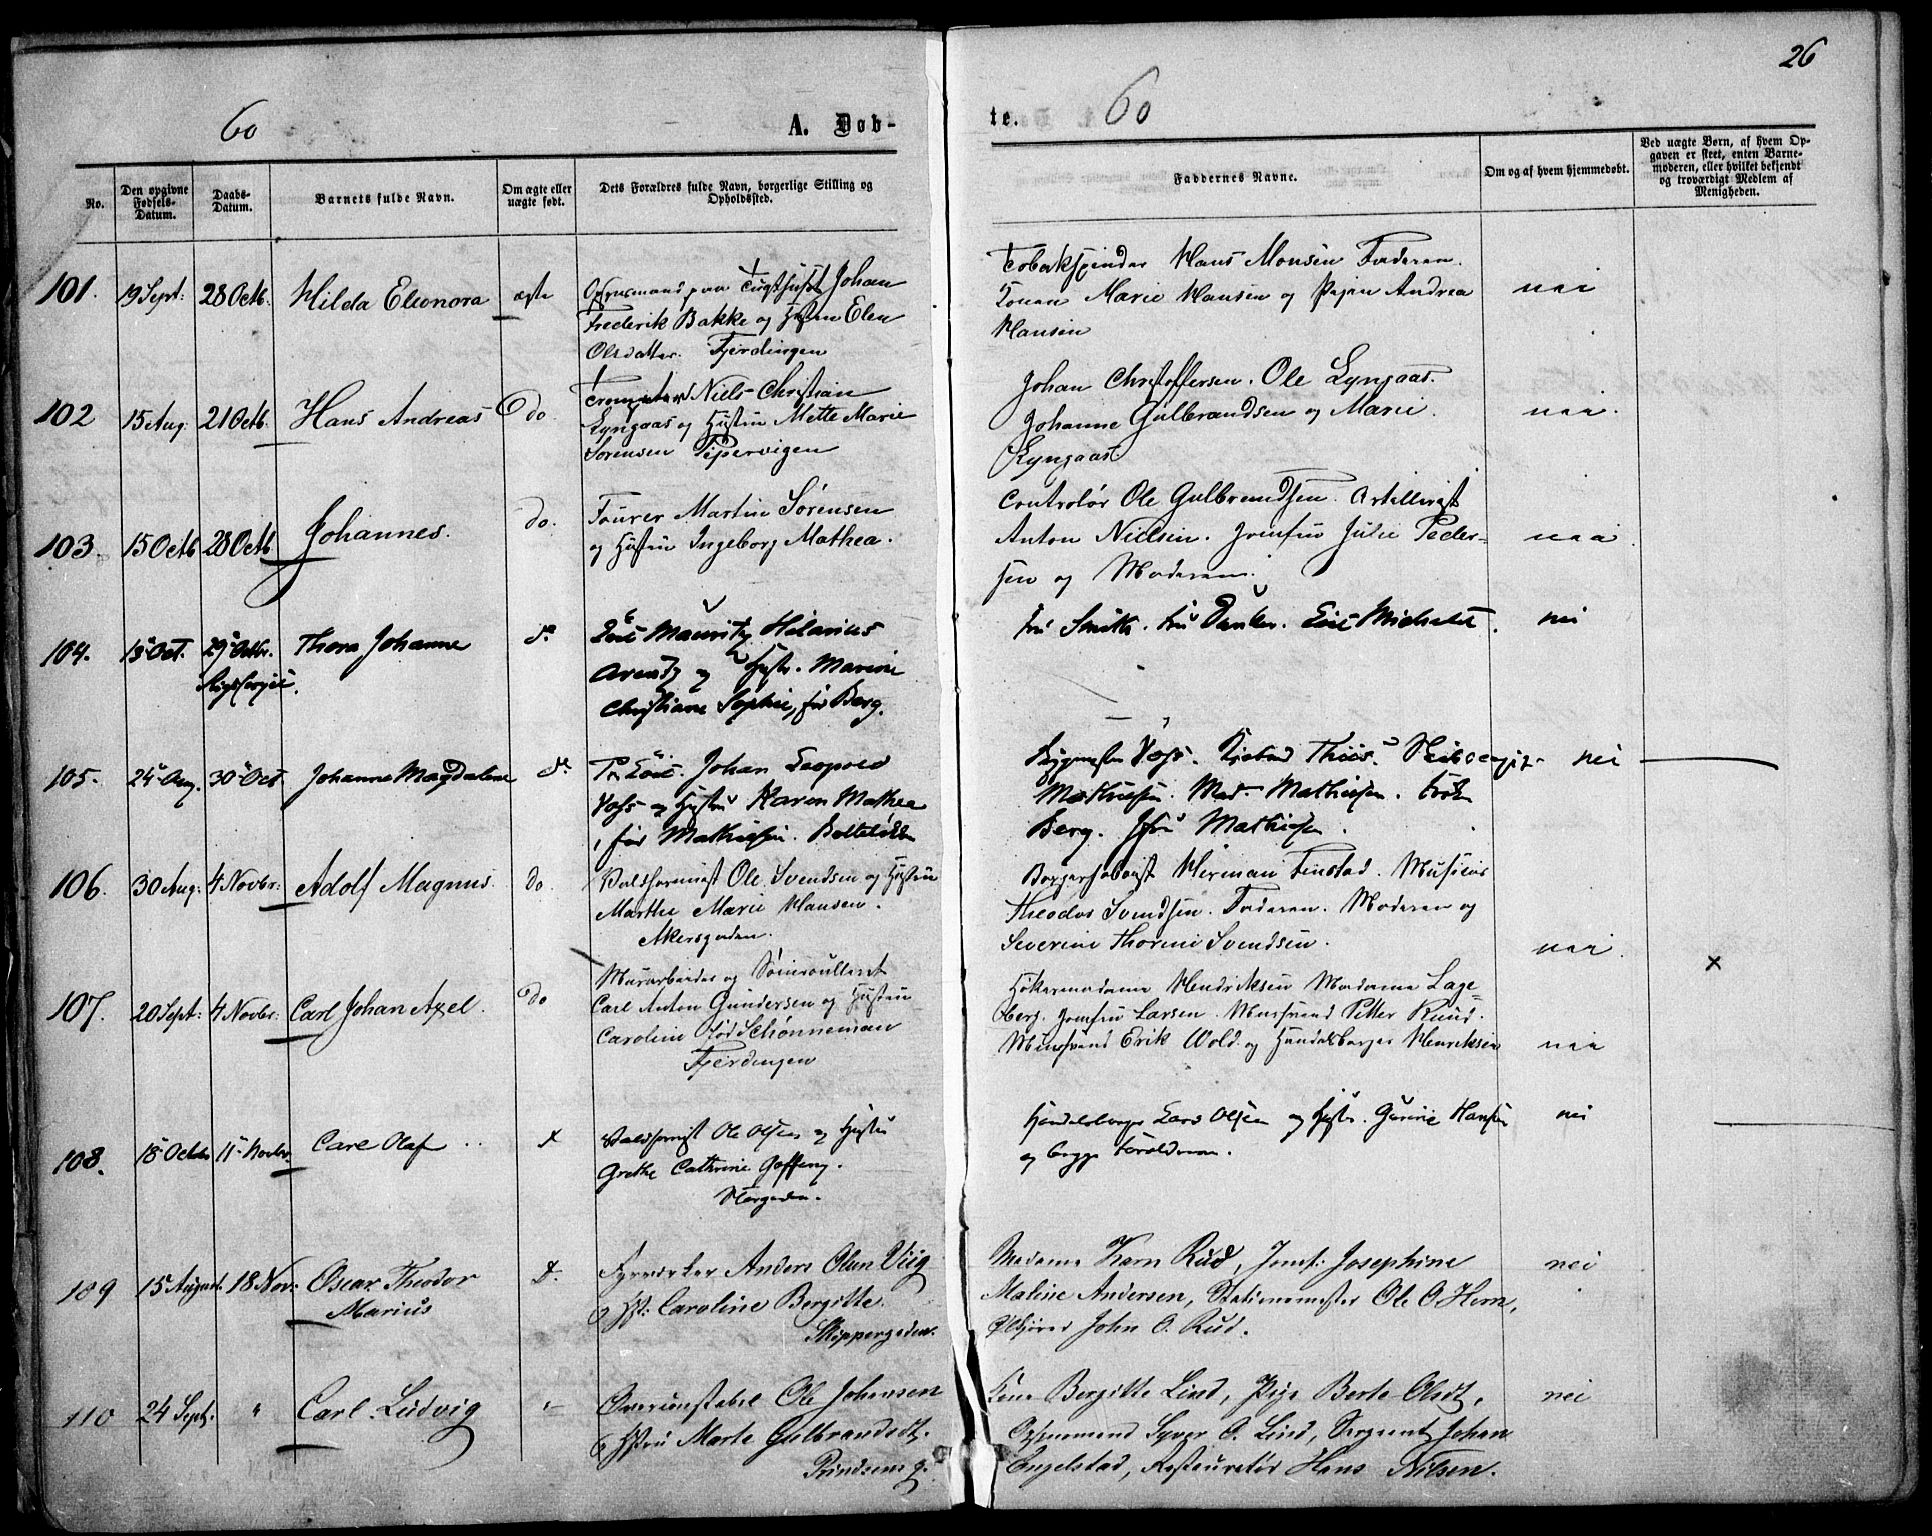 26
60
A. Døb-
te.
60
No.
Den opgivne Fødsels-Datum.
Daabs-Datum.
Barnets fulde Navn.
Om ægte eller uægte født.
Dets Forældres fulde Navn, borgerlige Stilling og Opholdssted.
Faddernes Navne.
Om og af hvem hjemmedøbt.
Ved uægte Børn, af hvem Opgaven er skeet, enten Barnemoderen, eller hvilket bekjendt og troværdigt Medlem af Menigheden.
101. 19 Sept: 28 Octb. Hilda Eleonora ægte
Opsynsmand paa Tugthuset Johan
Frederik Bakke og Hustru Elen
Olsdatter. Fjerdingen
Tobakspinder Hans Monsen Faderen.
Konen Marie Hansen og Pigen Andrea
Hansen
nei
102 15 Aug. 21 Octb. Hans Andreas do.
Niels Christian
Lyngaas og Hustru Mette Marie
Sørensen Pipervigen
Johan Christoffersen. Ole Lyngaas.
Johanne Gulbrandsen og Marie.
Lyngaas.
nei.
103. 15 Octb 28 Octb Johannes. do.
Fourer Martin Sørensen
og Hustru Ingeborg Mathea.
Controlør Ole Gulbrandsen. Artillerist
Anton Nielsen. Jomfru Julie Peder-
sen og Moderen.
nei.
104. 15 Oct. 29 Octbr. Thora Johanne do
Mauritz Hilarius
Arentz og Hustr. Marine
Christiane Sophie, før Berg.
Fru Smith. Fru Michelet.
nei
105. 24 Aug. 30 Oct. Johanne Magdalene do
Pr. Löit. Johan Leopold
Voss og Hustru Karen Mathea
, før Mathiesen.
Voss. Thiis.
Mathiesen. Mad. Mathiesen. Frøk.
Berg. Jfru Mathiesen.
nei
106. 30 Aug: 4 Novbr: Adolf Magnus. do.
Ole Svendsen og Hustru
Marthe Marie Hansen.
Akersgaden.
Herman Finstad. Musikus
Theodor Svendsen. Faderen. Moderen og
Severine Thorine Svendsen.
nei.
107. 20 Sept: 4 Novbr: Carl Johan Axel. do
Murarbeider og
Carl Anton Gundersen og Hustru
Caroline født Schønneman
Fjerdingen
Høkermadame Hendriksen Madame Lage-
berg. Jomfru Larsen. Petter Ruud.
Erik Wold og Handelsborger Henriksen
nei
x
108. 18 Octbr 11 Novbr. Carl Olaf
Ole Olsen og Hustru
Grethe Cathrine
Handelsborger Lars Olsen og Hustr. Hansen
og begge Forældrene.
nei
109 15 August. 18 Nov: Oscar Theodor
Marius
D.
Fyrvirker Anders Olsen Viig
og Hst: Caroline Bergitte.
Skippergaden.
Madame Karn Rud, Jomf: Josephine
Maline Andersen, Stationsmester Ole O. Horn,
John O. Rud.
nei
110 24 Sept. " Carl Ludvig "
Overconstabel Ole Johansen
og Hstru Marte Gulbrandsdt.
Kone Bergitte Lind, Pige Berte Olsdt,
Opsynsmand Syver O. Lind, Sergeant Johan
Engelstad, Restauratør Hans Nilsen.
nei